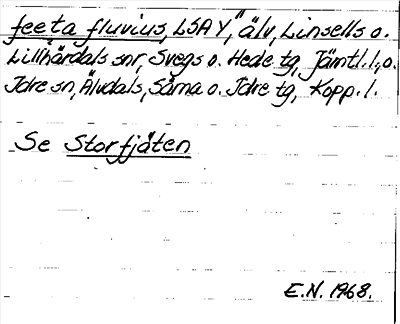 feeta fluvius, LSA Y, "älv, Linsells o.
Lillhärdals snr, Svegs o. Hede tg, Jämtl. l., o.
Idre sn, Älvdals, Särna o. Idre tg, Kopp. l.
Se Storfjäten
E.N. 1968.